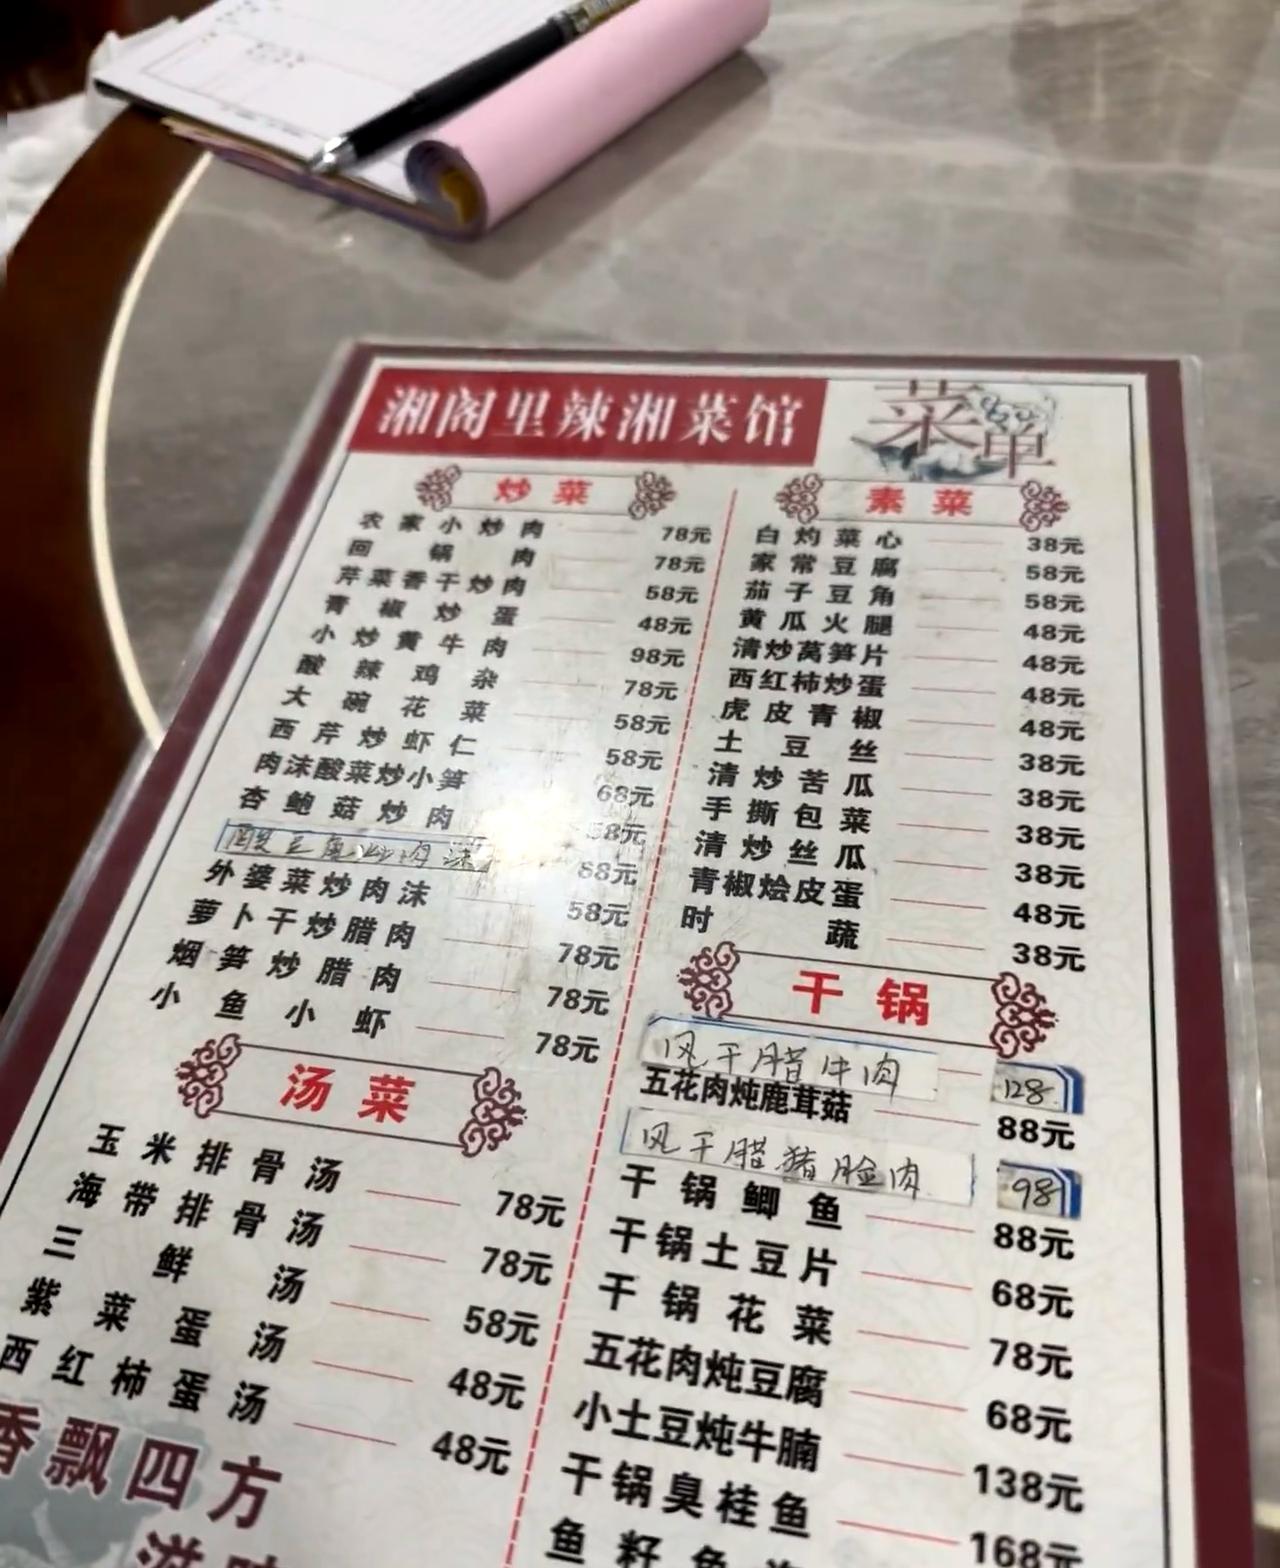 湘阁里辣湘菜馆
菜单
炒菜
农家小炒肉 78元
回锅肉 78元
芹菜香干炒肉 58元
青椒炒蛋 48元
小炒黄牛肉 98元
酸辣鸡杂 78元
大碗花菜 58元
西芹炒虾仁 58元
肉沫酸菜炒小笋 68元
杏鲍菇炒肉 58元
酸豆角炒肉沫 58元
外婆菜炒肉沫 58元
萝卜干炒腊肉 78元
烟笋炒腊肉 78元
小鱼小虾 78元
汤菜
玉米排骨汤 78元
海带排骨汤 78元
三鲜汤 58元
紫菜蛋汤 48元
西红柿蛋汤 48元
香飘四方
素菜
白灼菜心 38元
家常豆腐 58元
茄子豆角 58元
黄瓜火腿 48元
清炒莴笋片 48元
西红柿炒蛋 48元
虎皮青椒 48元
土豆丝 38元
清炒苦瓜 38元
手撕包菜 38元
清炒丝瓜 38元
青椒烩皮蛋 48元
时蔬 38元
干锅
风干腊牛肉 128
五花肉炖鹿茸菇 88元
风干腊猪脸肉 98
干锅鲫鱼 88元
干锅土豆片 68元
干锅花菜 78元
五花肉炖豆腐 68元
小土豆炖牛腩 138元
干锅臭桂鱼 168元
鱼籽鱼泡